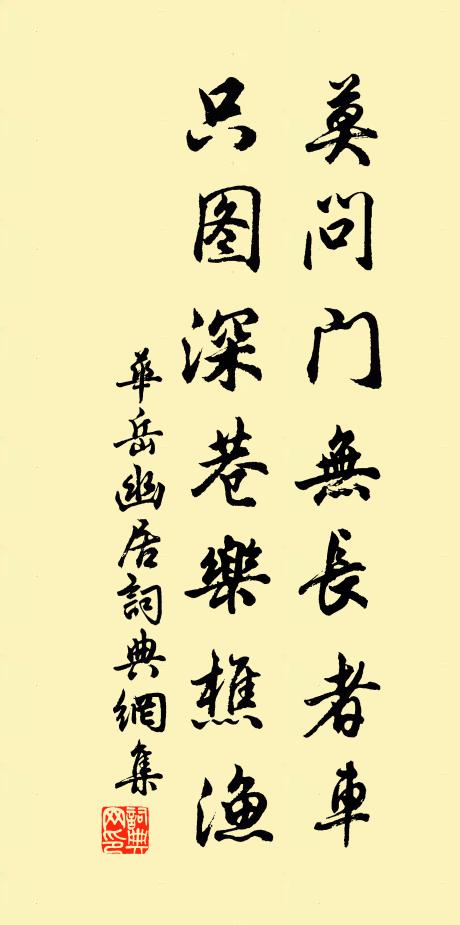 莫问门無長者車
只图深巷樂樵渔
華岳幽居詞典網集
詞典网印